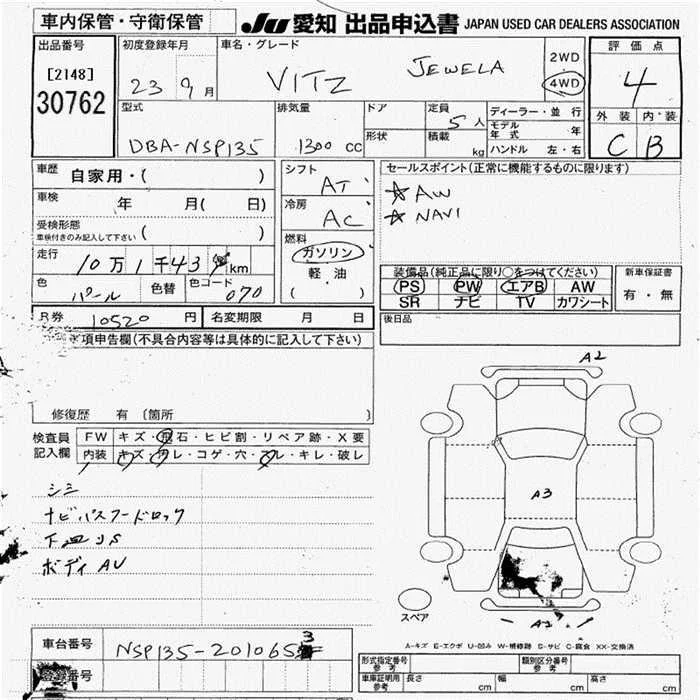 車内保管・守衛保管 JU 愛知 出品申込書 JAPAN USED CAR DEALERS ASSOCIATION
出品番号 [2148] 30762
初度登録年月 23 9月
車名・グレード VITZ JEWELA
2WD 4WD
評価点 4
外装 内装
C B
型式 DBA-NSP135
排気量 1300 CC
ドア
形状
定員 5人
積載 kg
ディーラー・並行
モデル年式 年
ハンドル 左・右
車歴 自家用・( )
車検 年 月( 日)
受検形態 車検付きのみ記入して下さい ( )
走行 10万1千43 km
色 パール 色替 色コード 070
シフト AT
冷房 AC
燃料 ガソリン
軽油
( )
セールスポイント(正常に機能するものに限ります)
☆ AW
☆ NAVI
装備品(純正品に限り○をつけてください)
PS PW エアB AW
SR ナビ TV カワシート
新車保証書
有・無
R券 10520 円 名変期限 月 日
後日品
項申告欄(不具合内容等は具体的に記入して下さい)
修復歴 有 〔箇所 〕
検査員記入欄
FW キズ・飛石・ヒビ割・リペア跡・X要
内装 キズ・ヨゴレ・コゲ・穴・スレ・キレ・破レ
シミ
ナビパスワードロック
下回りS
ボディAU
A2
A3
スペア
A-キズ E-エクボ U-凹み W-補修跡 S-サビ C-腐食 XX-交換済
車台番号 NSP135-201065
登録番号
形式指定番号 参考
類別区分番号 参考
車庫証明用 参考 長さ cm 幅 cm 高さ cm